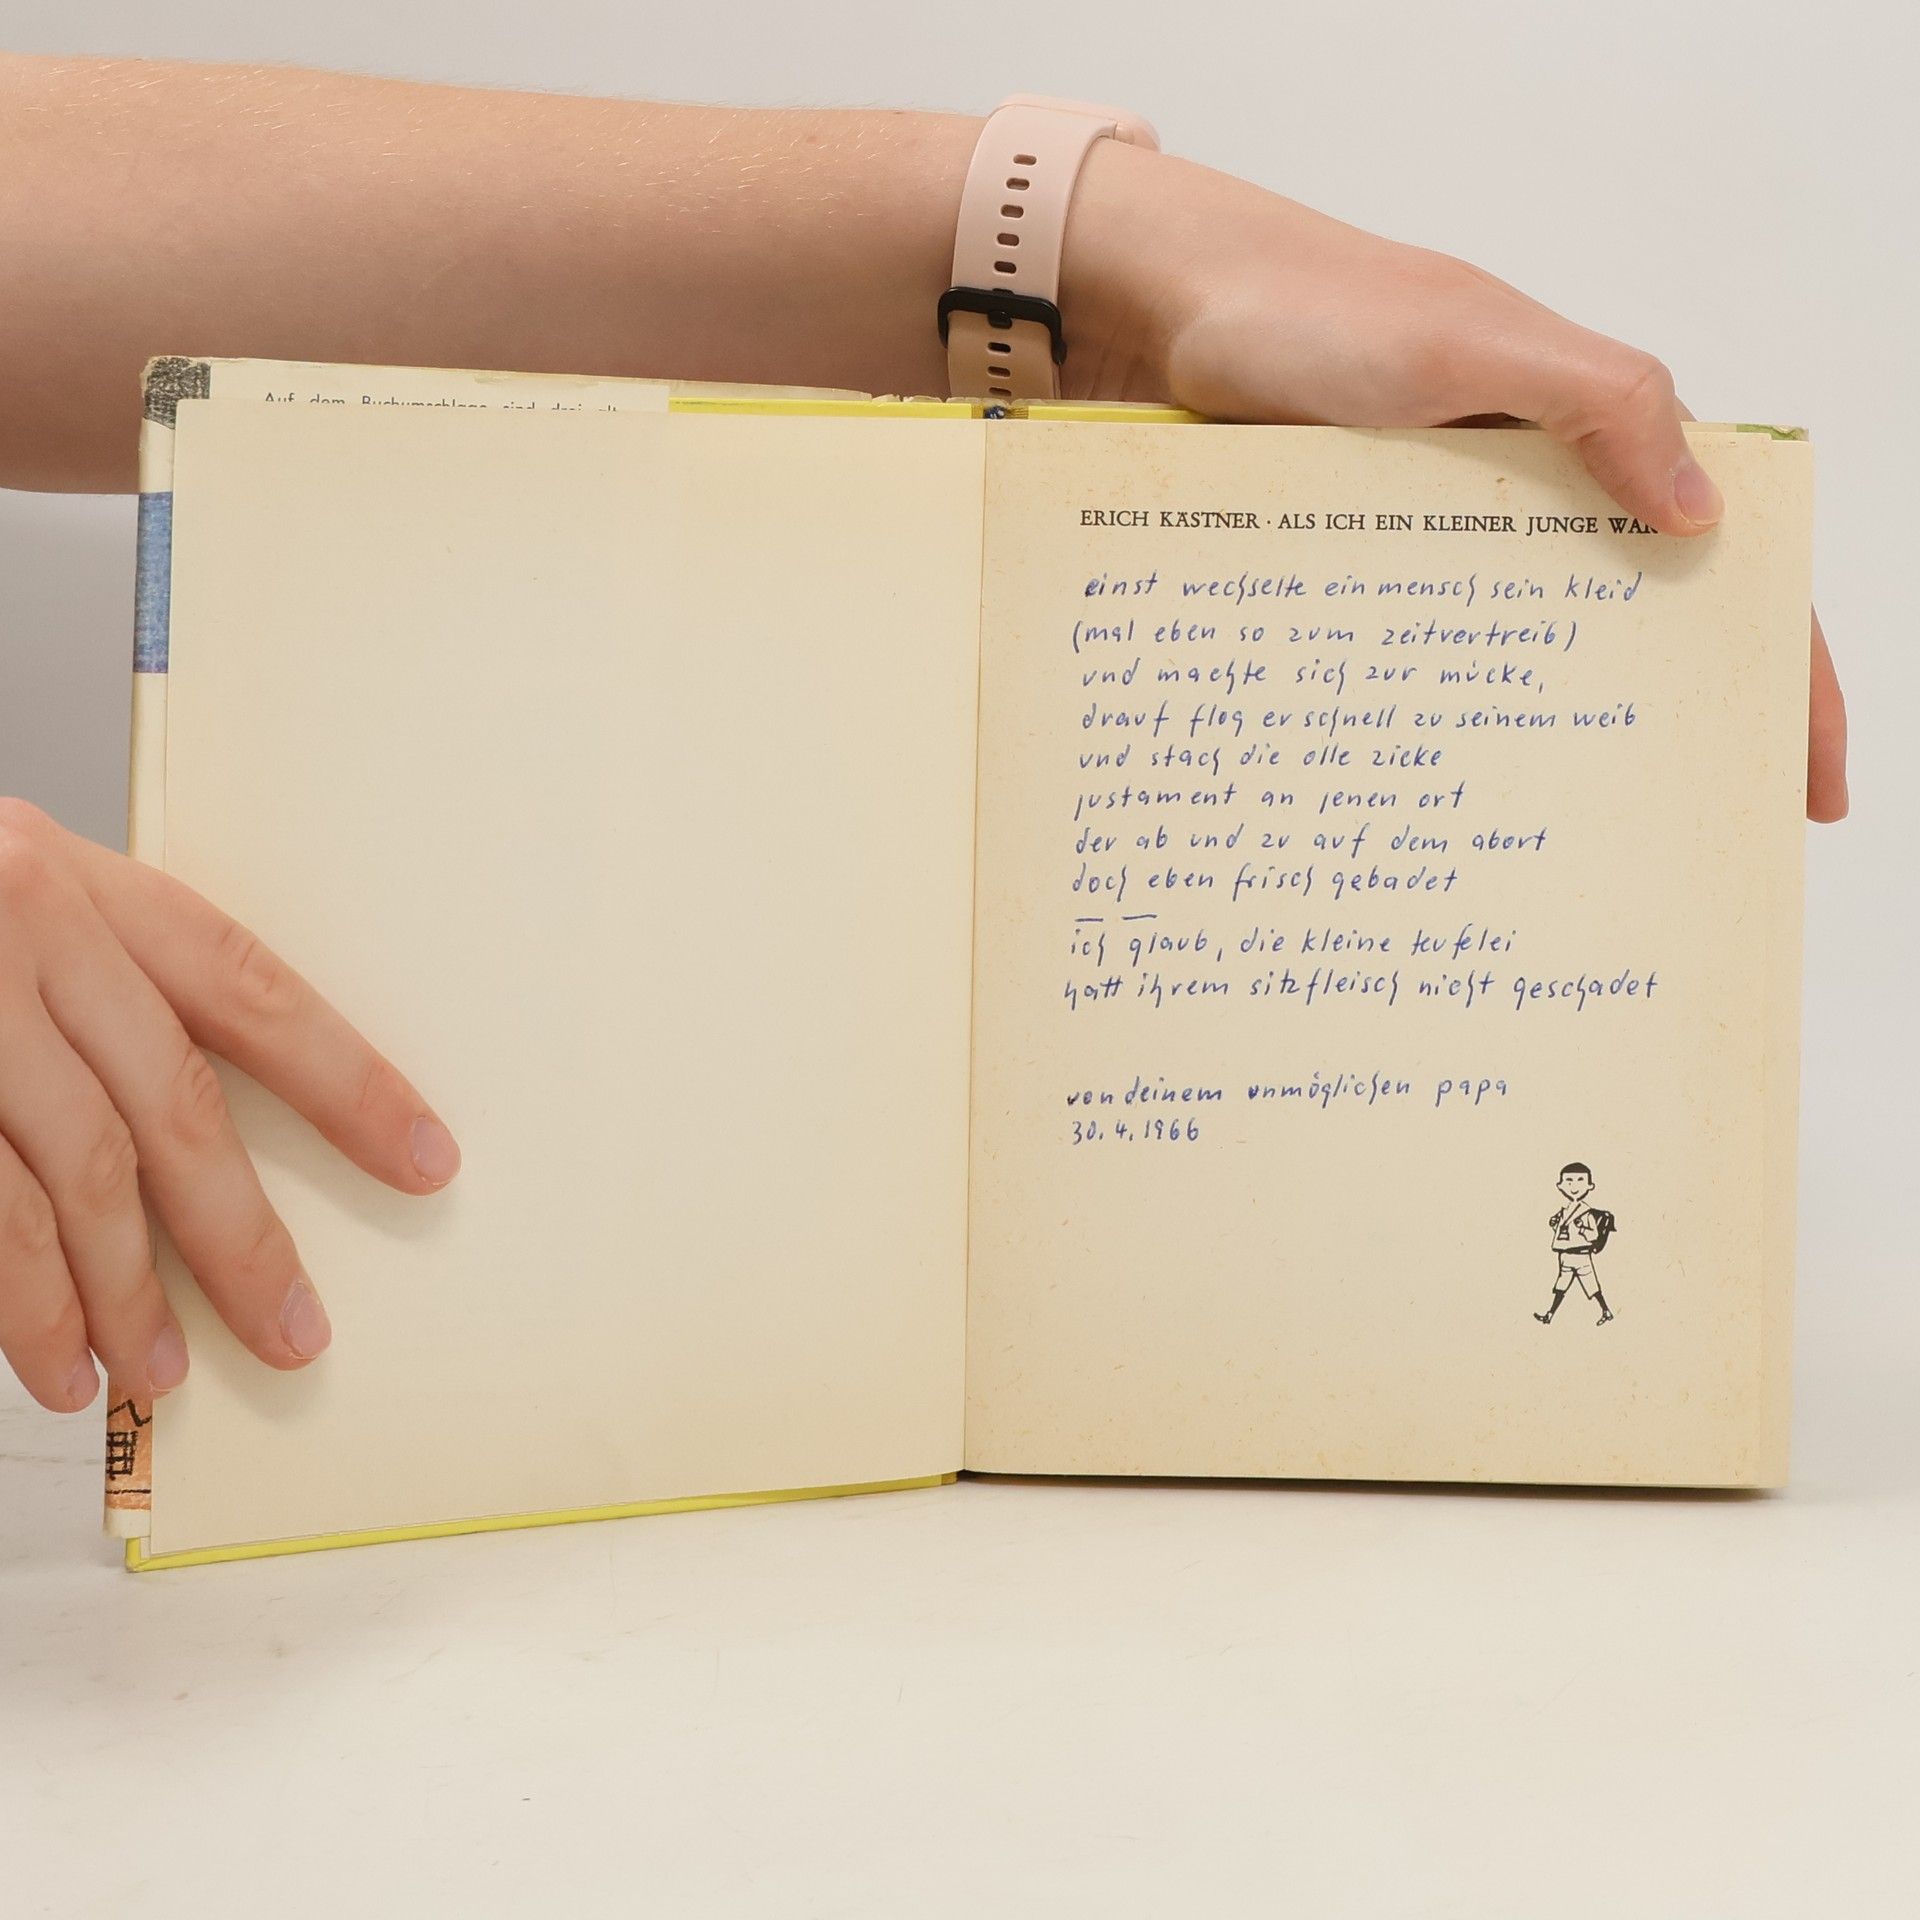 Auf dem Buchumschlage sind drei alt
ERICH KÄSTNER · ALS ICH EIN KLEINER JUNGE WAR
einst wechselte ein mensch sein kleid
(mal eben so zum zeitvertreib)
und machte sich zur mücke,
drauf flog er schnell zu seinem weib
und stach die olle zicke
justament an jenen ort
der ab und zu auf dem abort
doch eben frisch gebadet
ich glaub, die kleine teufelei
hatt ihrem sitzfleisch nicht geschadet
von deinem unmöglichen papa
30.4.1966